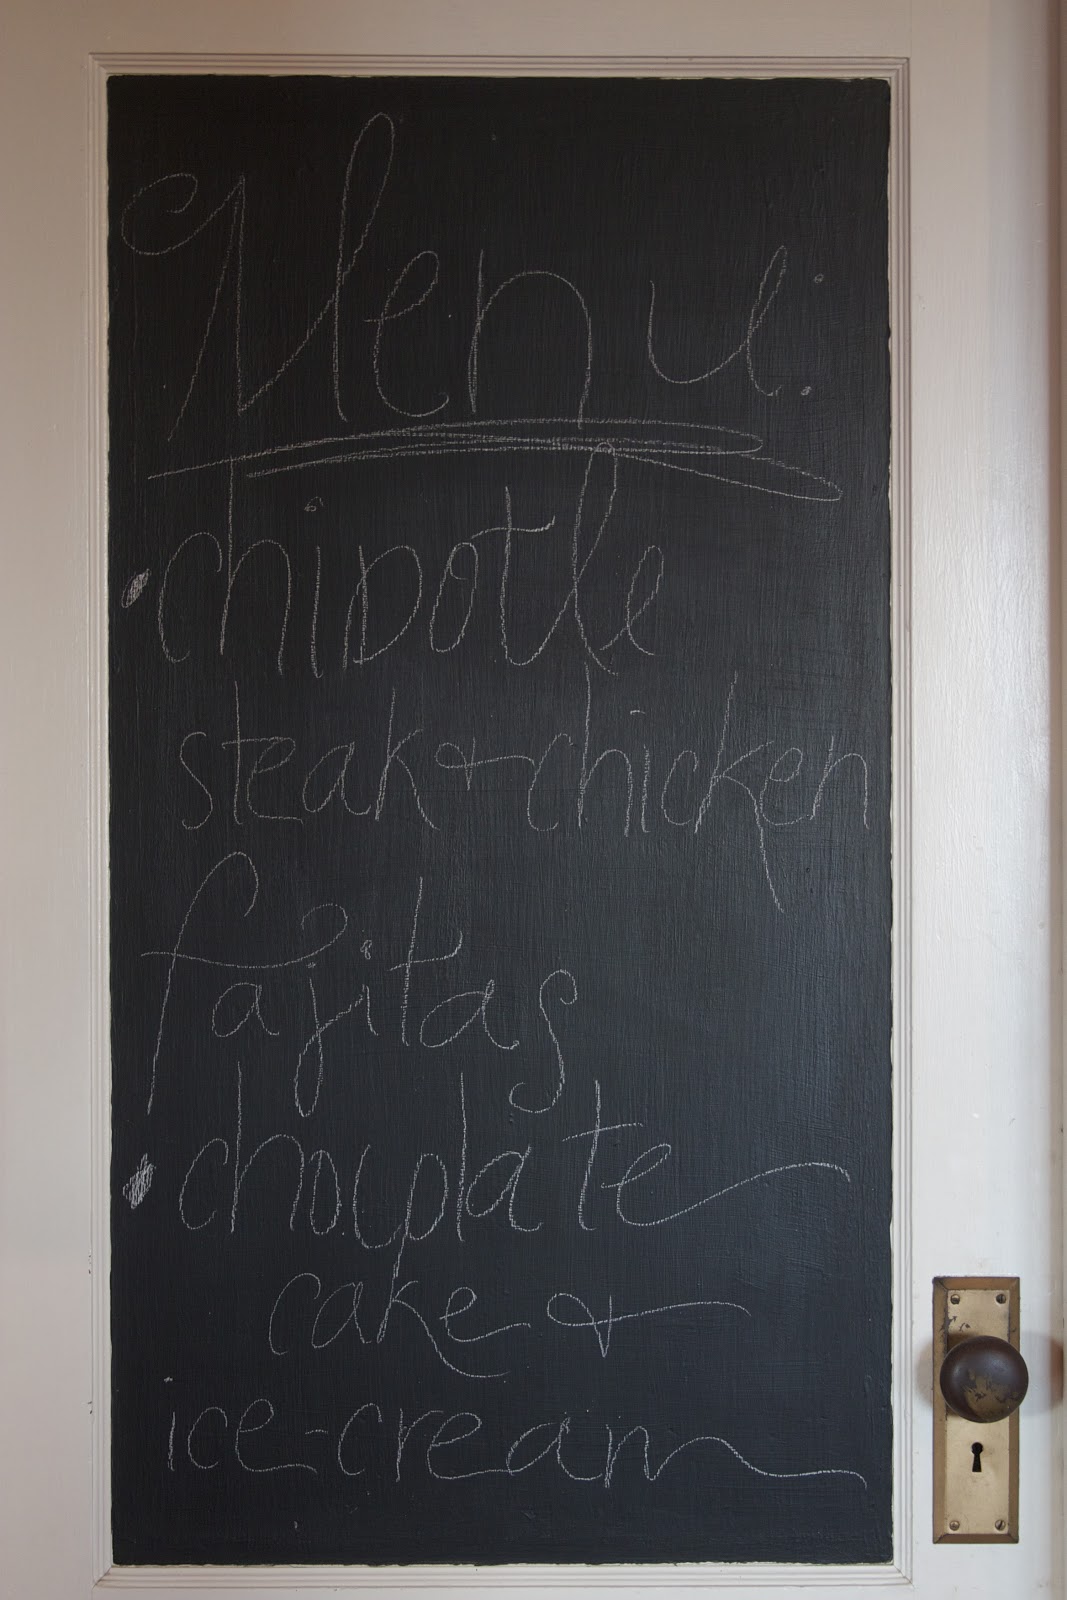 Menu:
• chipotle
steak & chicken
fajitas
• chocolate
cake &
ice-cream